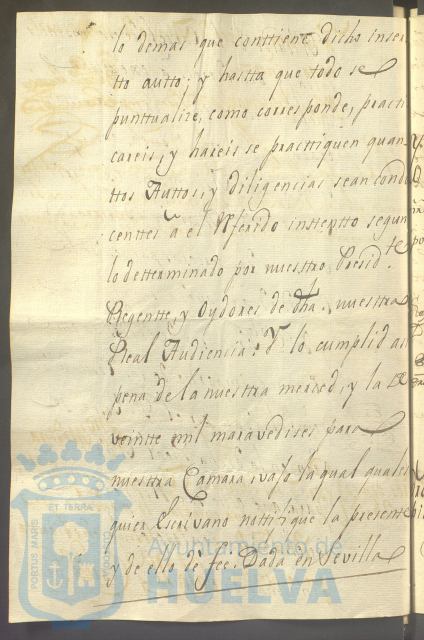 lo demas que conttiene dicho inser-
tto autto; y hastta que todo se
punttualize, como corresponde, practi
careis, y hareis se practiquen quan-
ttos Auttos, y diligencias sean condu
centtes a el Rferido insttentto segun
lo detterminado por nuesttro Presid.te
Regentte, y Oydores de dha. nuestra
Real Audiencia: Y lo cumplid asi
pena de la nuestra merced, y la de
veintte mil maravedises para
nuesttra Camara, vajo la qual quales
quier Escrivano nottifique la presente
y de ello de fee. Dada en Sevilla
ET TERRA
PORTUS MARIS
CUSTODIA
Ayuntamiento de
HUELVA